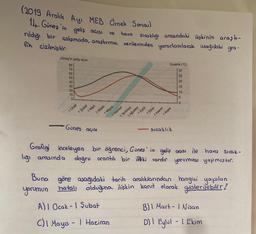 (2019 Aralık Ayı MEB Örnek Sorusu)
14. Güneş'in geliş açısı ve hava sıcaklığı arasındaki ilişkinin araştı-
rıldığı bir çalışmada, araştırma verilerinden yararlanılarak aşağıdaki gra-
fik çizilmiştir.
Güneş'in geliş açısı
Sıcaklık (°C)
Güneş açısı
sıcaklık
Grafiği inceleyen bir öğrenci, Güneş'in geliş açısı ile hava sıcak-
lığı arasında doğru orantılı bir ilişki vardır yorumunu yapmıştır.
Buna göre aşağıdaki tarih aralıklarından hangisi yapılan
yorumun hatalı olduğuna ilişkin kanıt olarak gösterilebilir?
A) 1 Ocak - 1 Şubat
B) 1 Mart - 1 Nisan
C) 1 Mayıs - 1 Haziran
D) 1 Eylül - 1 Ekim